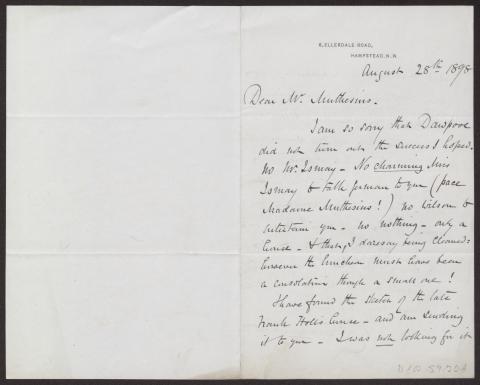 6, ELLERDALE ROAD,
HAMPSTEAD, N.W.
August 28th 1898
Dear Mr. Muthesius.
I am so sorry that Dawpool
did not turn out the success I hoped.
No Mr. Ismay - No charming Miss
Ismay to talk german to you (pace
Madame Muthesius!) no Wilson to
entertain you - no nothing - only a
house - & that, I daresay being cleaned:
however the luncheon must have been
a consolation though a small one!
I have found the sketch of the late
Frank Holl's house - and am sending
it to you - I was not looking for it